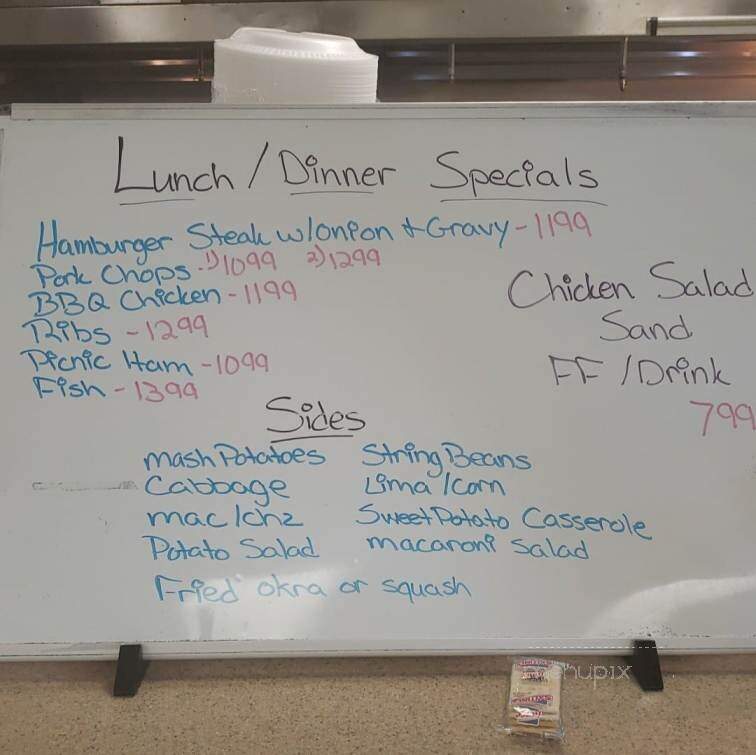 Lunch / Dinner Specials
Hamburger Steak w/onion + Gravy - 1199
Pork Chops - 1) 1099 2) 1299
BBQ Chicken - 1199
Ribs - 1299
Picnic Ham - 1099
Fish - 1399
Chicken Salad
Sand
FF / Drink
799
Sides
mash Potatoes String Beans
Cabbage Lima / Corn
mac / chz Sweet Potato Casserole
Potato Salad macaroni Salad
Fried okra or squash
menupix